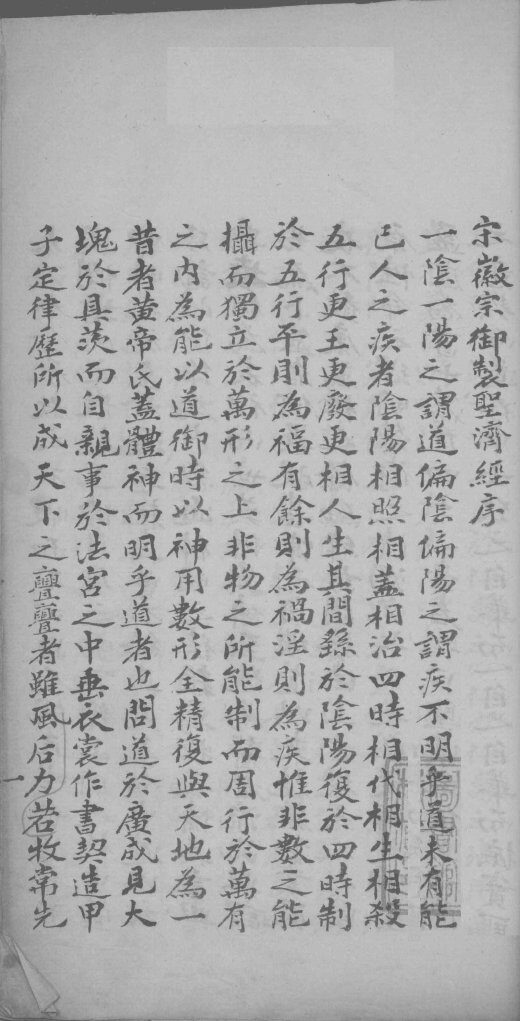 宋徽宗御製聖濟經序
一陰一陽之謂道偏陰偏陽之謂疾不明乎道未有能
已人之疾者陰陽相照相蓋相治四時相代相生相殺
五行更王更廢更相人生其間繇於陰陽復於四時制
於五行平則為福有餘則為禍淫則為疾惟非數之能
攝而獨立於萬形之上非物之所能制而周行於萬有
之内為能以道御時以神用數形全精復與天地為一
昔者黄帝氏蓋體神而明乎道者也問道於廣成見大
塊於具茨而自親事於法宮之中垂衣裳作書契造甲
子定律歷所以成天下之亹亹者雖風后力若牧常先
一